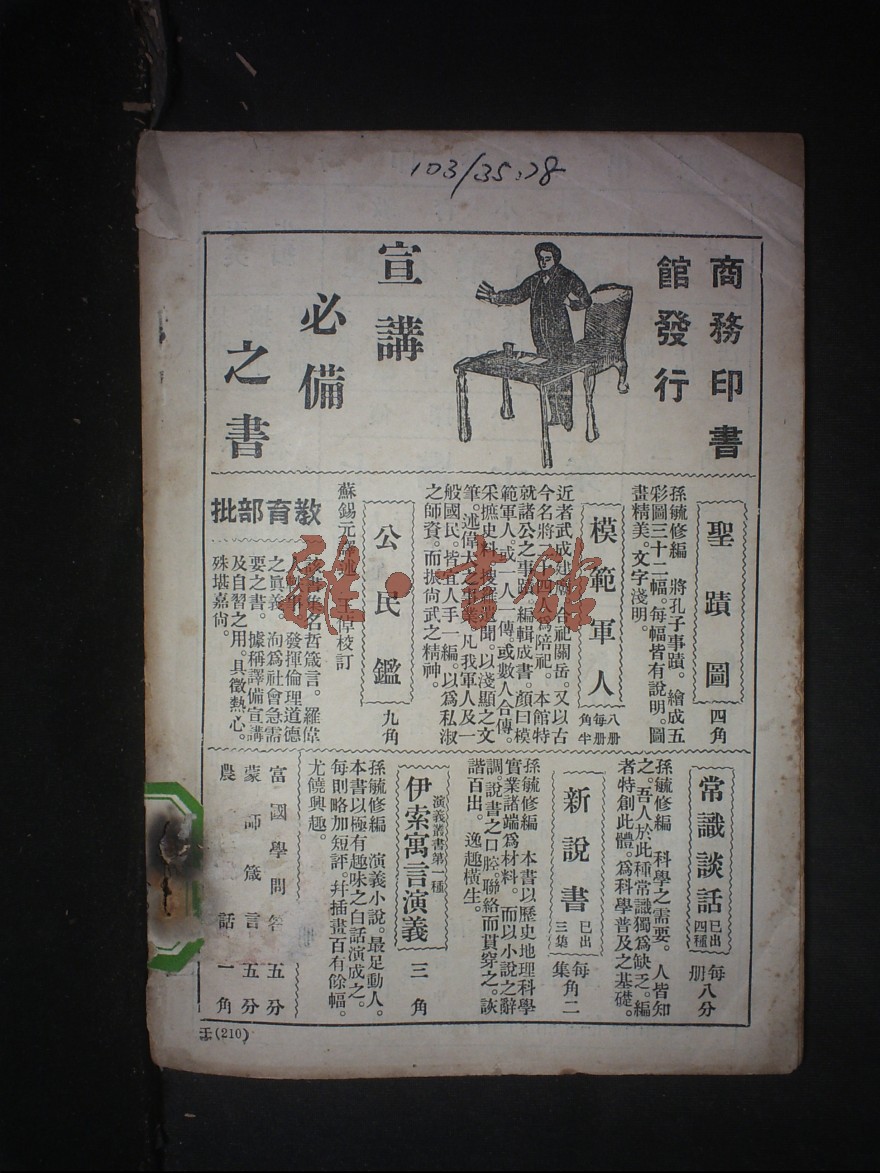 103/35:78
商務印書
館發行
宣講
必備
之書
聖蹟圖 四角
孫毓修編 將孔子事蹟。繪成五
彩圖三十二幅。每幅皆有說明。圖
畫精美。文字淺明。
模範軍人 八册 每册角半
近者武成建廟。合祀關岳。又以古
今名將二十四人爲陪祀。本館特
就諸公之事蹟。編輯成書。顏曰模
範軍人。或一人一傳。或數人合傳。
采摭史料。搜羅遺聞。以淺顯之文
筆。述偉大之事業。凡我軍人及一
般國民。皆宜人手一編。以爲私淑
之師資。而振尚武之精神。
公民鑑 九角
蘇錫元譯述 校訂
教育部批
名哲箴言。羅偉
人 發揮倫理道德
之眞義。洵爲社會急需
要之書。據稱譯備宣講
及自習之用。具徵熱心。
殊堪嘉尙。
常識談話 已出四種 每册八分
孫毓修編 科學之需要。人皆知
之。吾人於此種常識獨爲缺乏。編
者特創此體。爲科學普及之基礎。
新說書 已出三集 每集角二
孫毓修編 本書以歷史地理科學
實業諸端爲材料。而以小說之辭
調。說書之口腔。聯絡而貫穿之。詼
諧百出。逸趣橫生。
演義叢書第一種
伊索寓言演義 三角
孫毓修編 演義小說。最足動人。
本書以極有趣味之白話演成之。
每則略加短評。幷插畫百有餘幅。
尤饒興趣。
富國學問答 五分
蒙師箴言 五分
農 話 一角
(210)
雅·書館